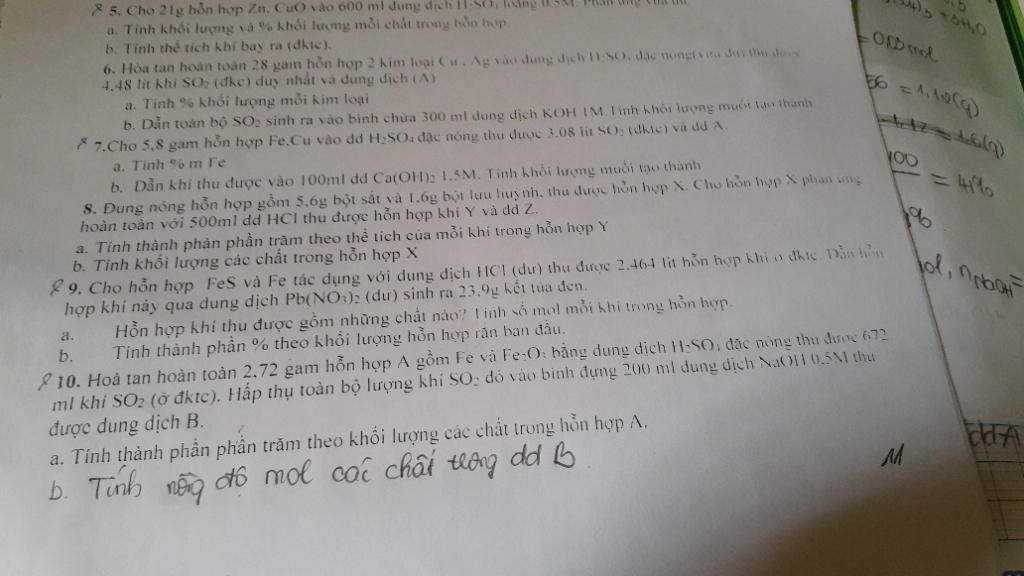 5. Cho 21g hỗn hợp Zn, CuO vào 600 ml dung dịch H₂SO₄ loãng 0.5M. Phản ứng vừa đủ
a. Tính khối lượng và % khối lượng mỗi chất trong hỗn hợp
b. Tính thể tích khí bay ra (đktc).
6. Hòa tan hoàn toàn 28 gam hỗn hợp 2 kim loại Cu, Ag vào dung dịch H₂SO₄ đặc nóng(vừa đủ) thu được
4.48 lít khí SO₂ (đkc) duy nhất và dung dịch (A)
a. Tính % khối lượng mỗi kim loại
b. Dẫn toàn bộ SO₂ sinh ra vào bình chứa 300 ml dung dịch KOH 1M. Tính khối lượng muối tạo thành
7.Cho 5.8 gam hỗn hợp Fe.Cu vào dd H₂SO₄ đặc nóng thu được 3.08 lít SO₂ (đktc) và dd A.
a. Tính % m Fe
b. Dẫn khí thu được vào 100ml dd Ca(OH)₂ 1.5M. Tính khối lượng muối tạo thành
8. Đung nóng hỗn hợp gồm 5.6g bột sắt và 1.6g bột lưu huỳnh. thu được hỗn hợp X. Cho hỗn hợp X phản ứng
hoàn toàn với 500ml dd HCl thu được hỗn hợp khí Y và dd Z.
a. Tính thành phần phần trăm theo thể tích của mỗi khí trong hỗn hợp Y
b. Tính khối lượng các chất trong hỗn hợp X
9. Cho hỗn hợp FeS và Fe tác dụng với dung dịch HCl (dư) thu được 2.464 lít hỗn hợp khí ở đktc. Dẫn hỗn
hợp khí này qua dung dịch Pb(NO₃)₂ (dư) sinh ra 23.9g kết tủa đen.
a. Hỗn hợp khí thu được gồm những chất nào? Tính số mol mỗi khí trong hỗn hợp.
b. Tính thành phần % theo khối lượng hỗn hợp rắn ban đầu.
10. Hoà tan hoàn toàn 2.72 gam hỗn hợp A gồm Fe và Fe₂O₃ bằng dung dịch H₂SO₄ đặc nóng thu được 672
ml khí SO₂ (ở đktc). Hấp thụ toàn bộ lượng khí SO₂ đó vào bình đựng 200 ml dung dịch NaOH 0.5M thu
được dung dịch B.
a. Tính thành phần phần trăm theo khối lượng các chất trong hỗn hợp A.
b. Tính nồng độ mol các chất trong dd B
= 0,03 mol
56 = 1,12(g)
= 1,6(g)
100
= 41%
%
ol, nNaOH =
dd A
M